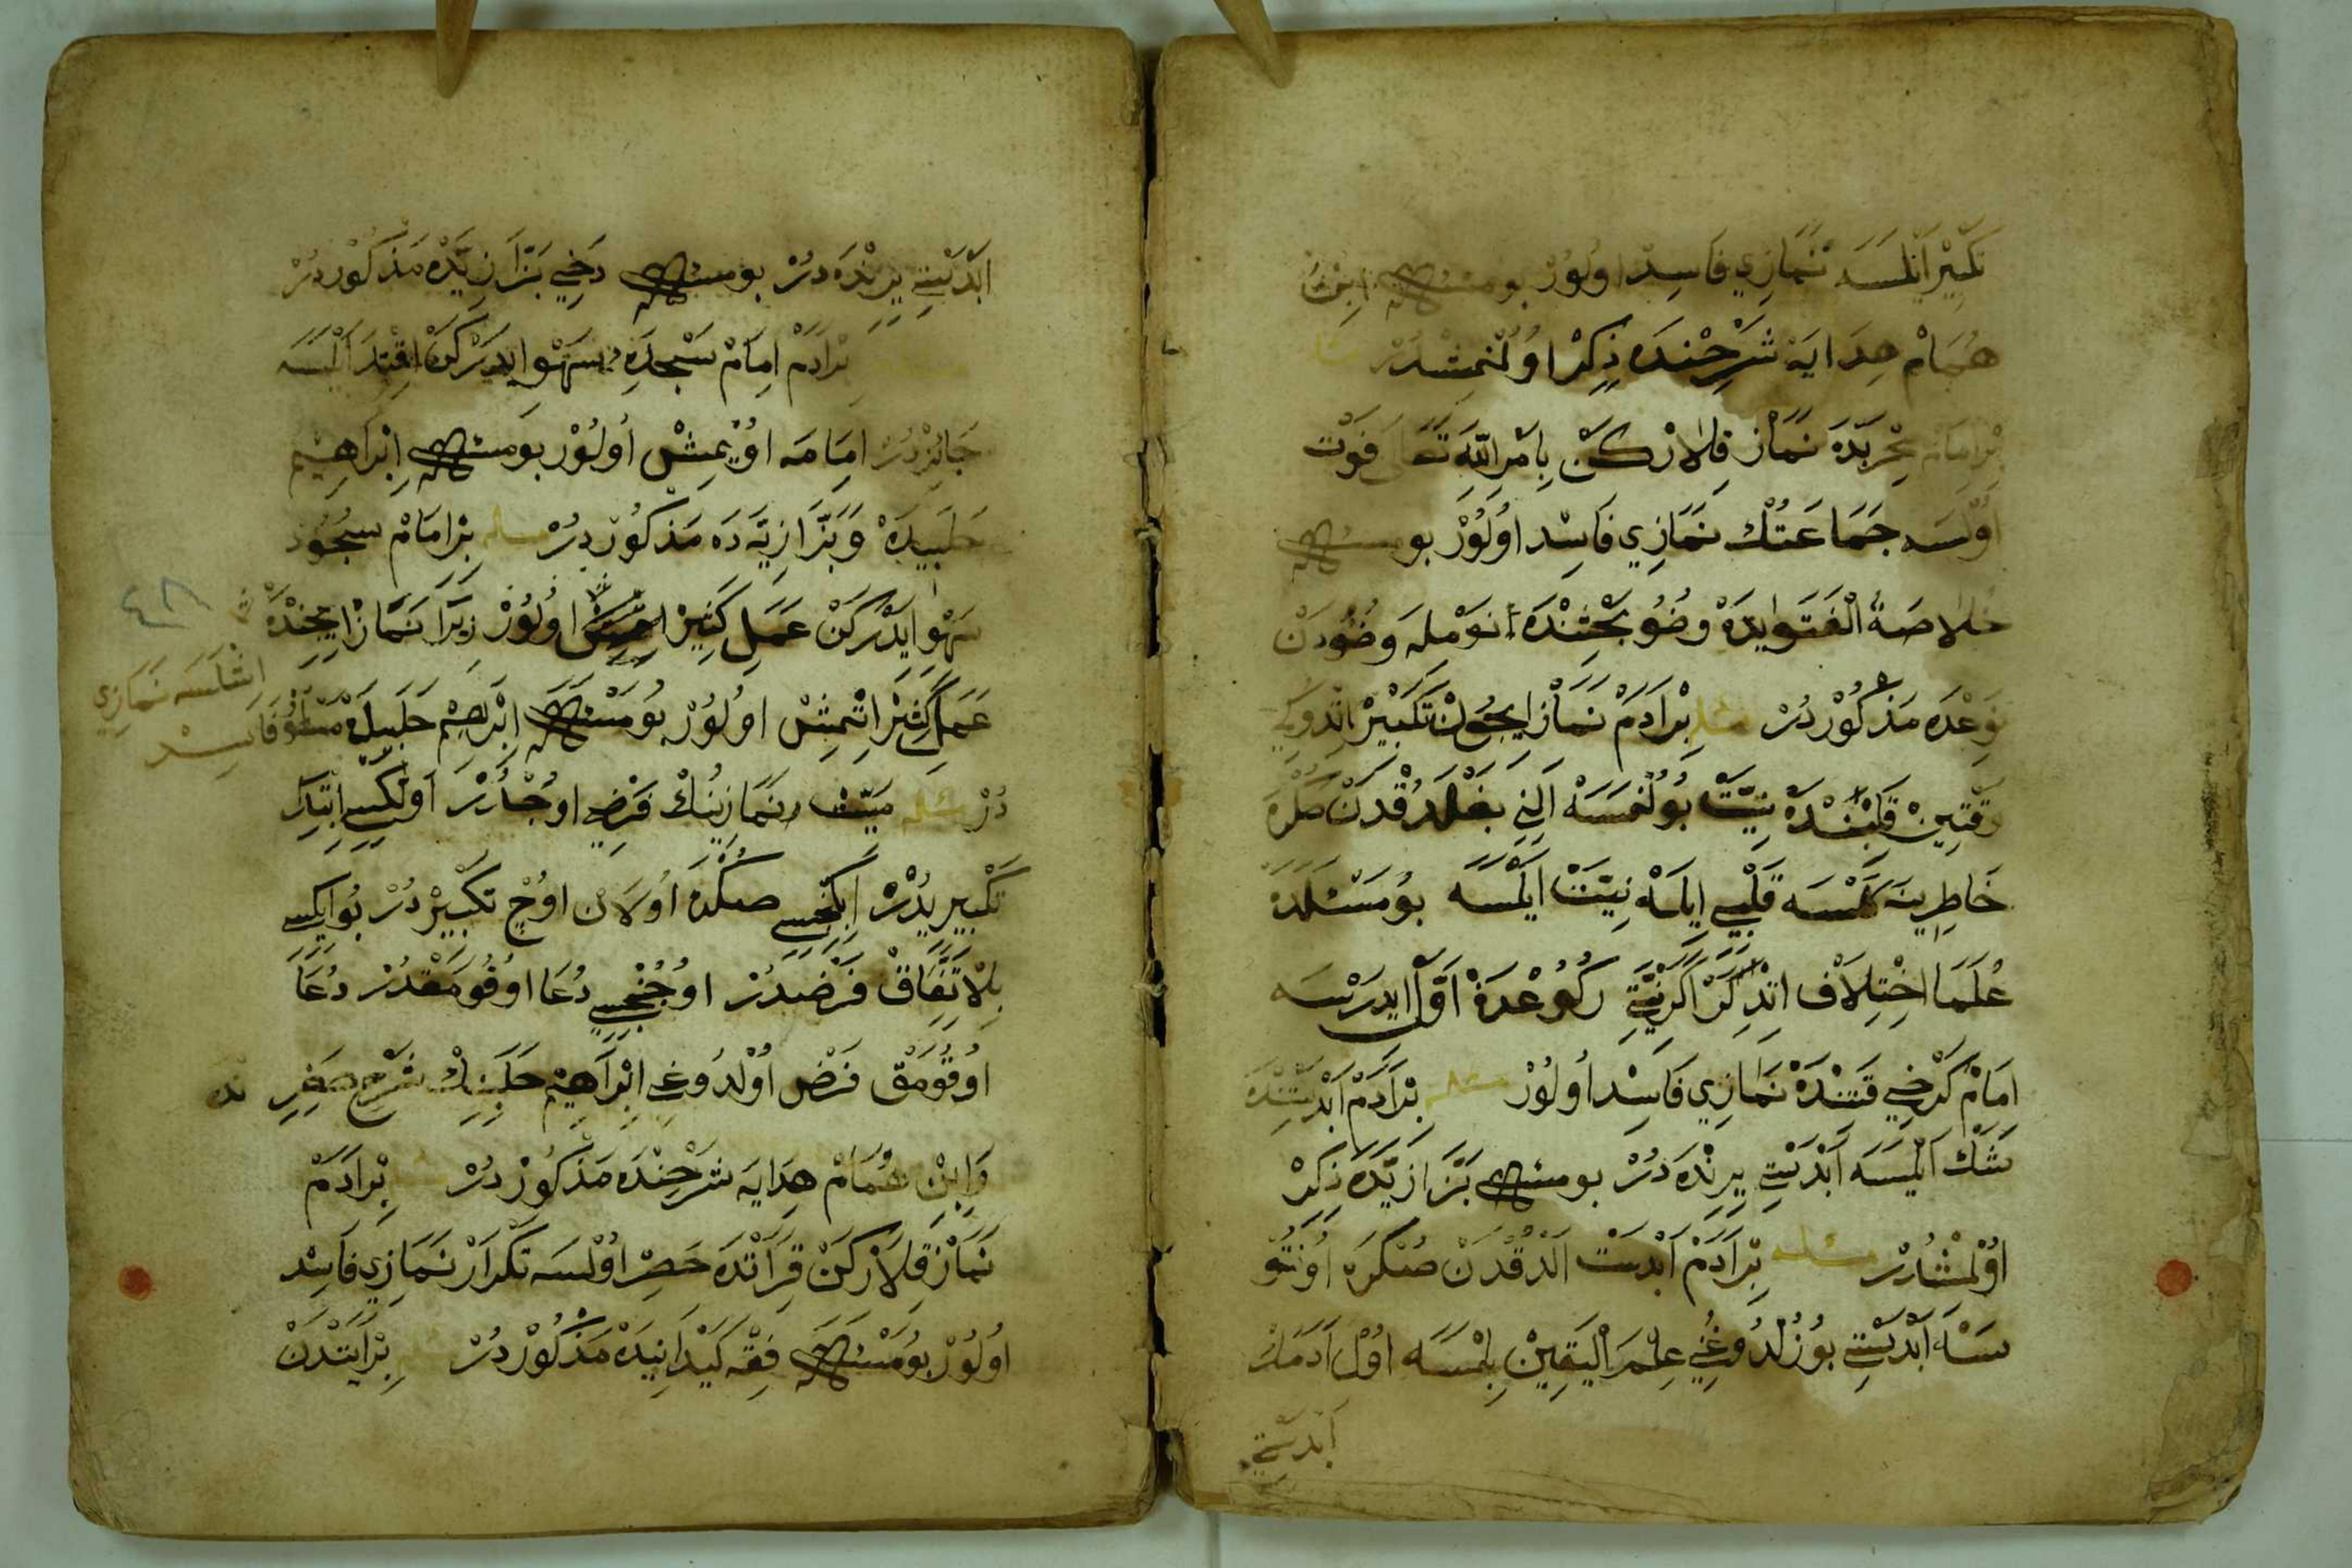 تكبير ايلمسه نمازي فاسد اولور بو مسئله ابن
همام هدايه شرحنده ذكر اولنمشدر
بر امام محربده نماز قلاركن بامر الله تعالى فوت
اولسه جماعتك نمازي فاسد اولور بو مسئله
خلاصة الفتاويده وضو بحثنده نوم له وضودن
نوعده مذكوردر مسئله بر ادم نماز ايچون تكبير اتدوكي
وقتين قلبنده نيت بولنمسه الني بغلدقدن صكره
خاطرينه كلسه قلبي ايله نيت ايلسه بو مسئلده
علما اختلاف اتديلر اكر نيتي ركوعدن اول ايدرسه
امام كرخي قتنده نمازي فاسد اولور مسئله بر ادم ابدستنده
شك ايلسه ابدستي يرنده در بو مسئله بزازيده ذكر
اولمشدر مسئله بر ادم ابدست الدقدن صكره اونتو
سه ابدستي بوزلدوغني علم اليقين بلمسه اول ادمك
ابدستي
ابدستي يرنده در بو مسئله دخي بزازيده مذكوردر
بر ادم امام سجده سهو ايدركن اقتدا ايلسه
جائزدر امامه اويمش اولور بو مسئله ابراهيم
حلبيده وبزازيه ده مذكوردر مسئله بر امام سجود
سهو ايدركن عمل كثير اولور زيرا نماز ايچنده
عمل كثير اتمش اولور بو مسئله ابرهيم حلبيده
اشلسه نمازي
فاسد
٤٨
در مسئله ميت نمازينك فرضي اوچدر اولكسي ابتدا
تكبيريدر ايكنجسي صكره اولان اوچ تكبيردر بو ايكسي
بالاتفاق فرضدر اوچنجسي دعا اوقومقدر دعا
اوقومق فرض اولدوغي ابراهيم حلبينك شرح صغيرنده
وابن همام هدايه شرحنده مذكوردر بر ادم
نماز قلاركن قراتده حصر اولسه تكرار نمازي فاسد
اولور بو مسئله فقه كيدانيده مذكوردر مسئله بر ابتدن